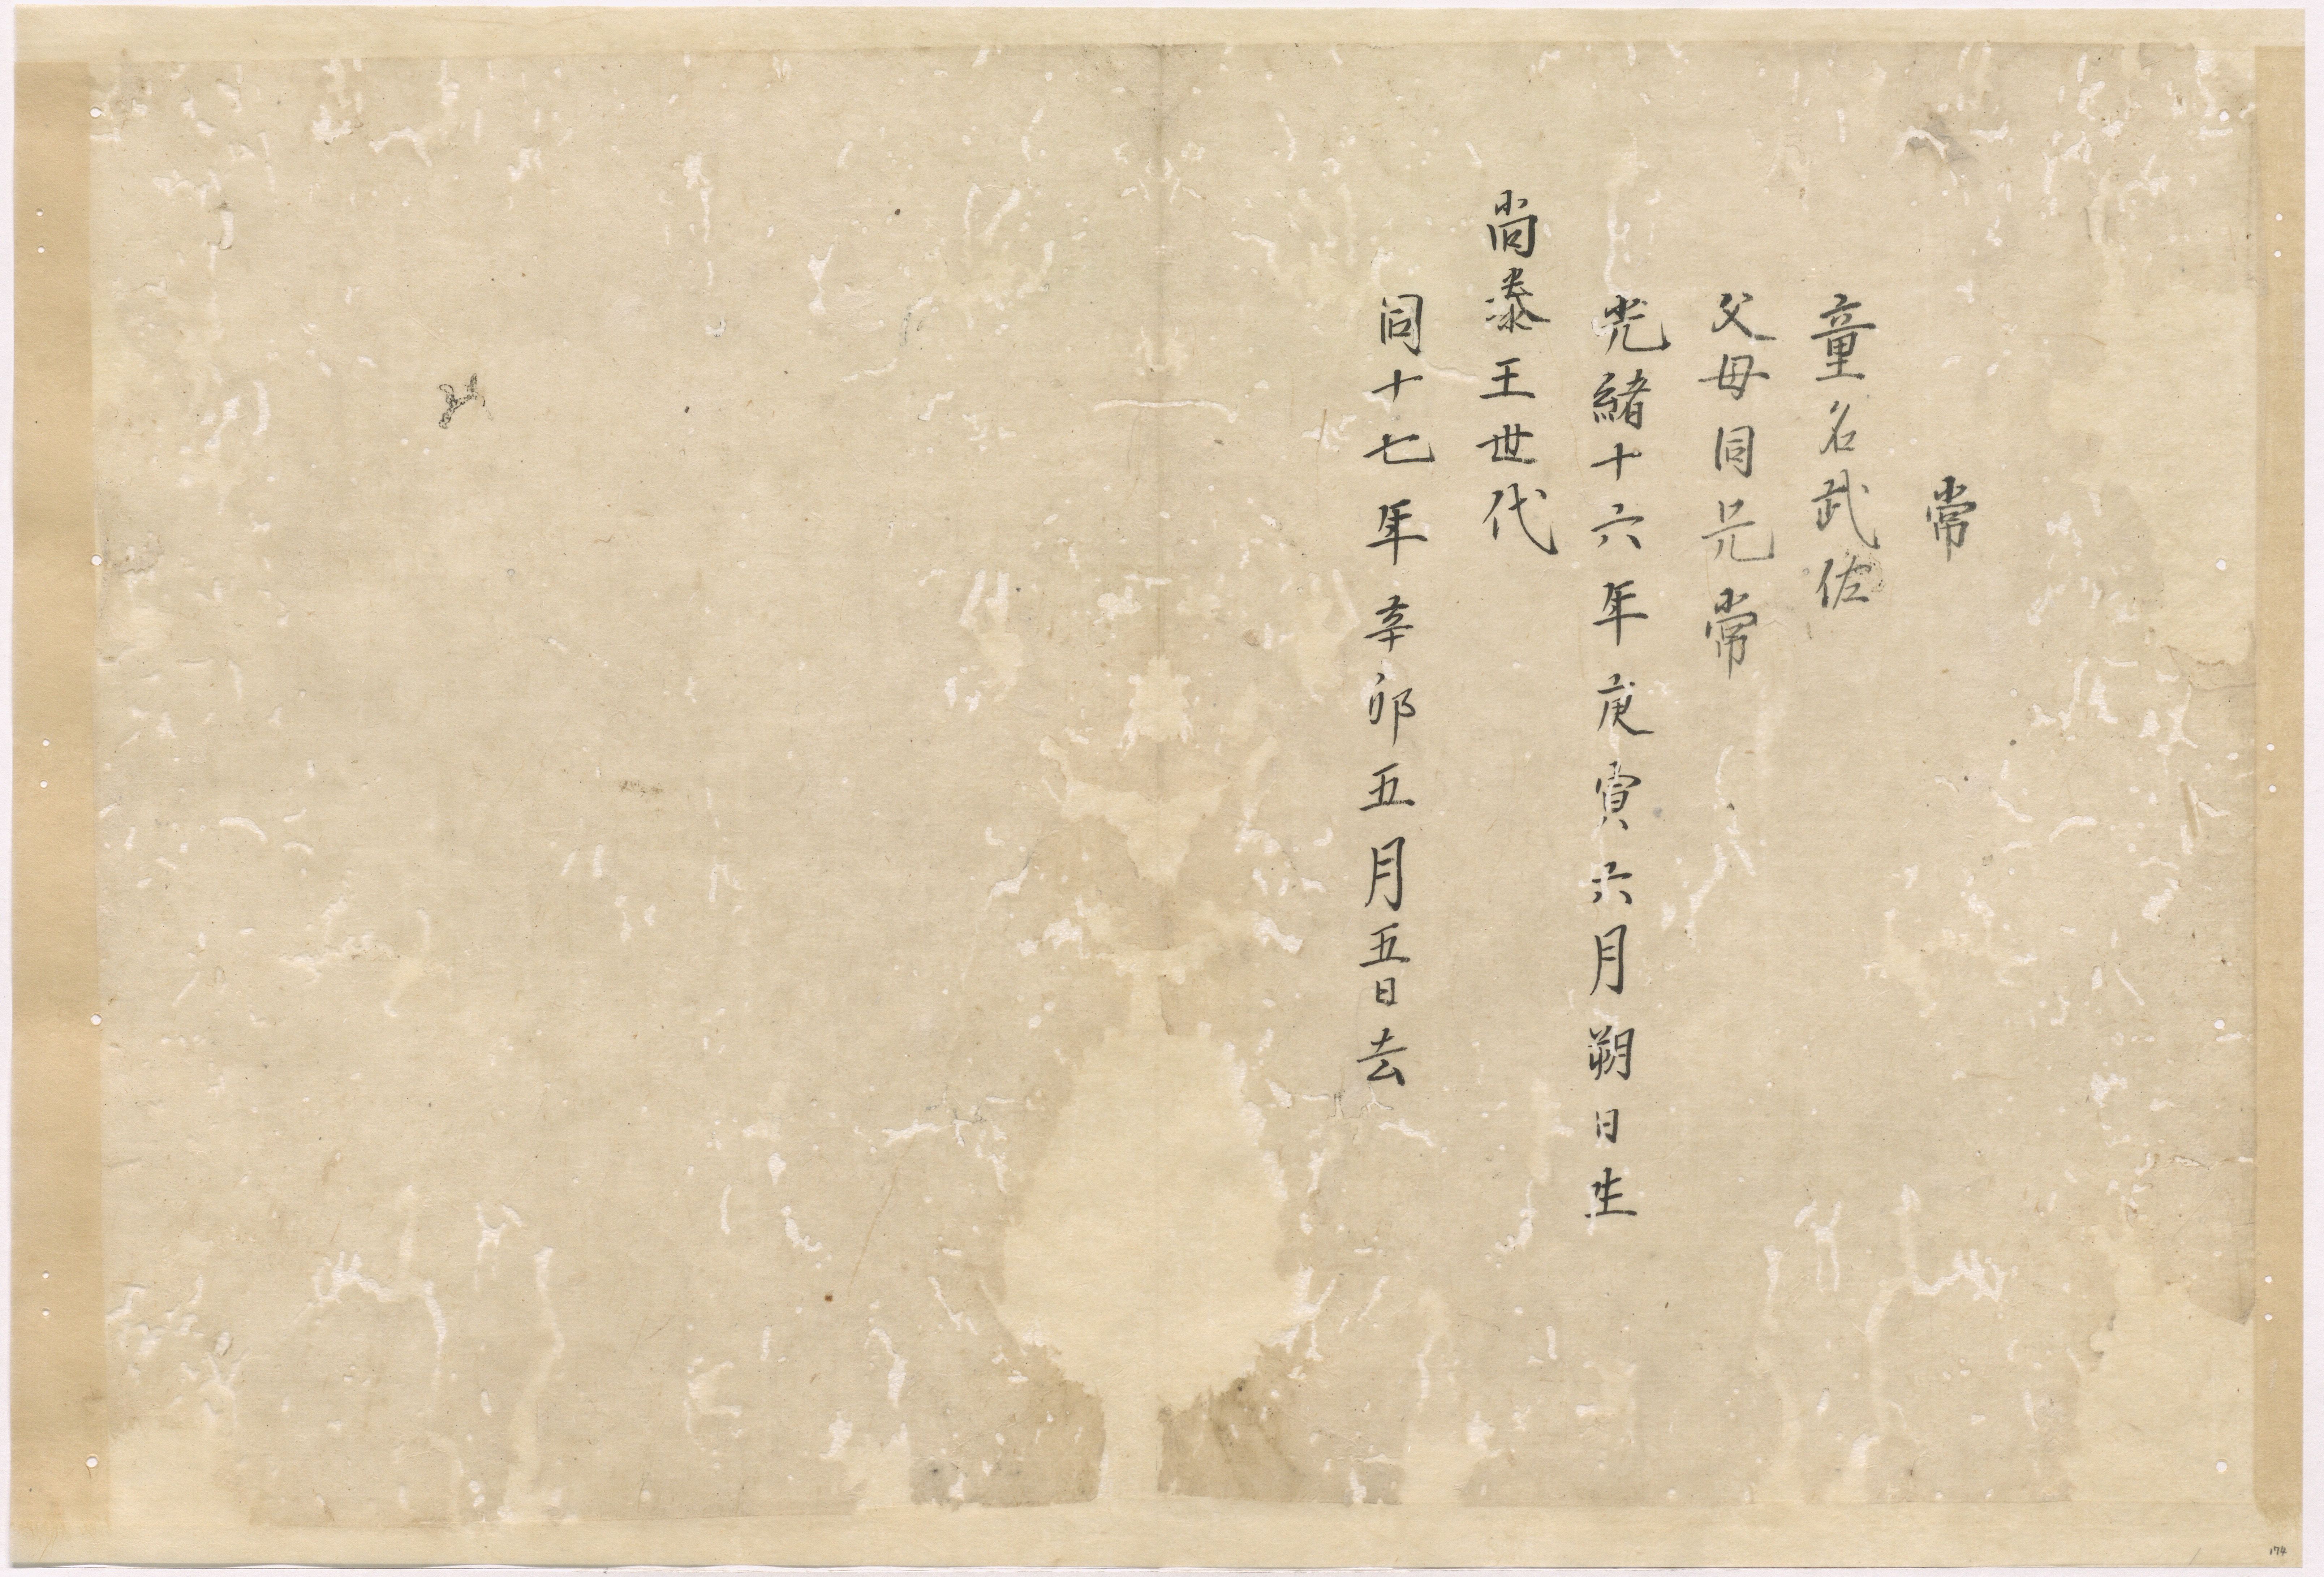 常
童名武佐
父母同兄常
光緒十六年庚寅六月朔日生
尚泰王世代
同十七年辛卯五月五日去
174